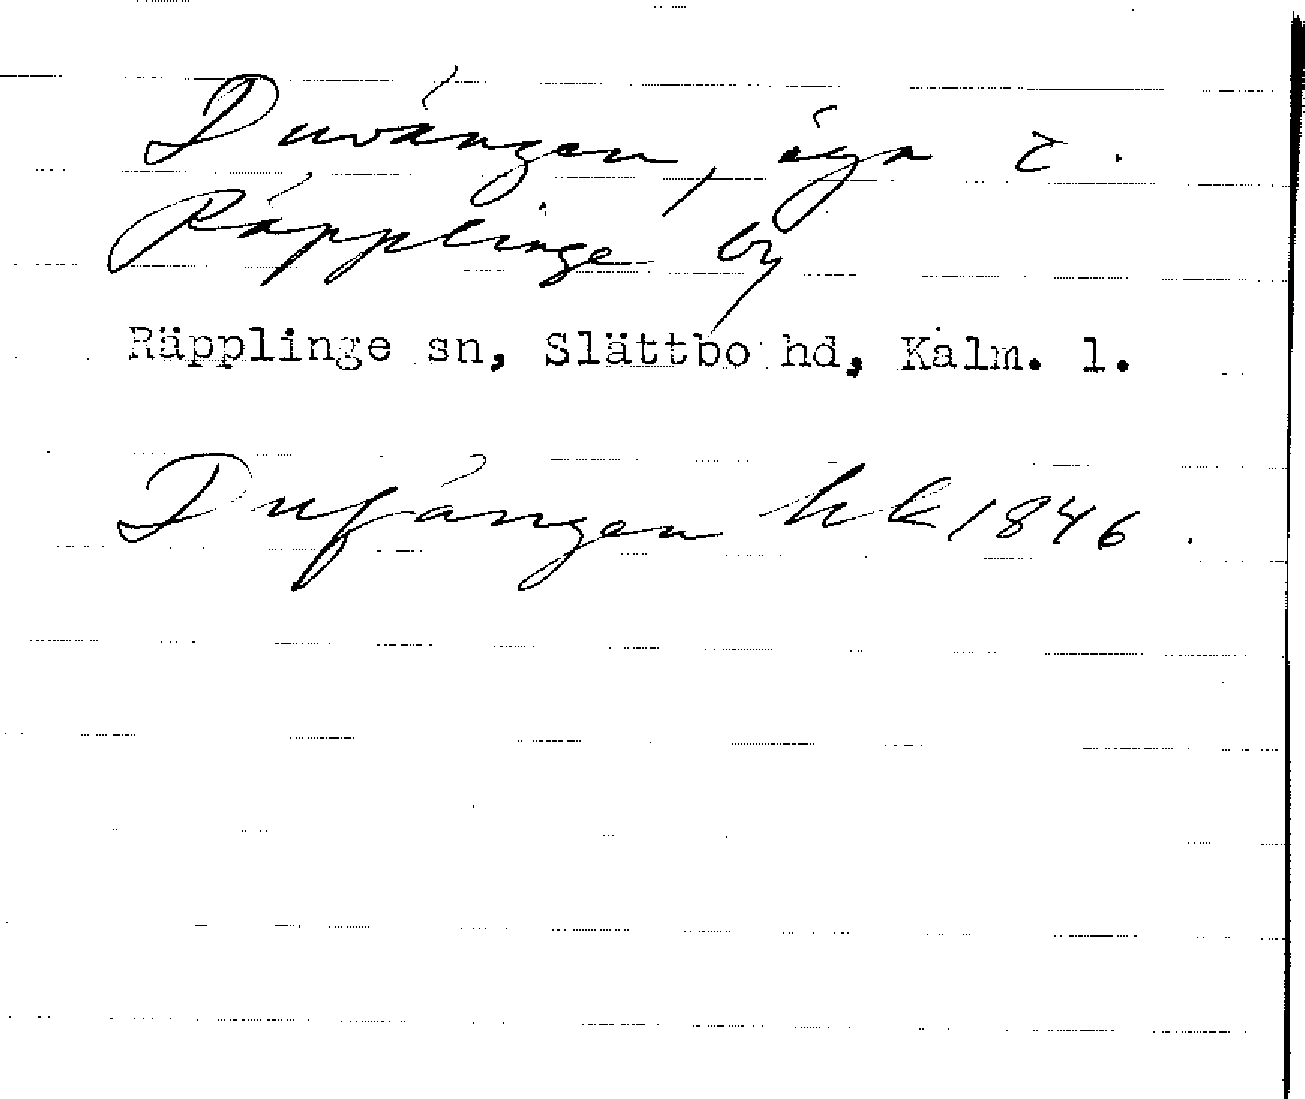 Duvängen, äga t.
Räpplinge by
Räpplinge sn, Slättbo hd, Kalm. l.
Dufängen hk 1846.